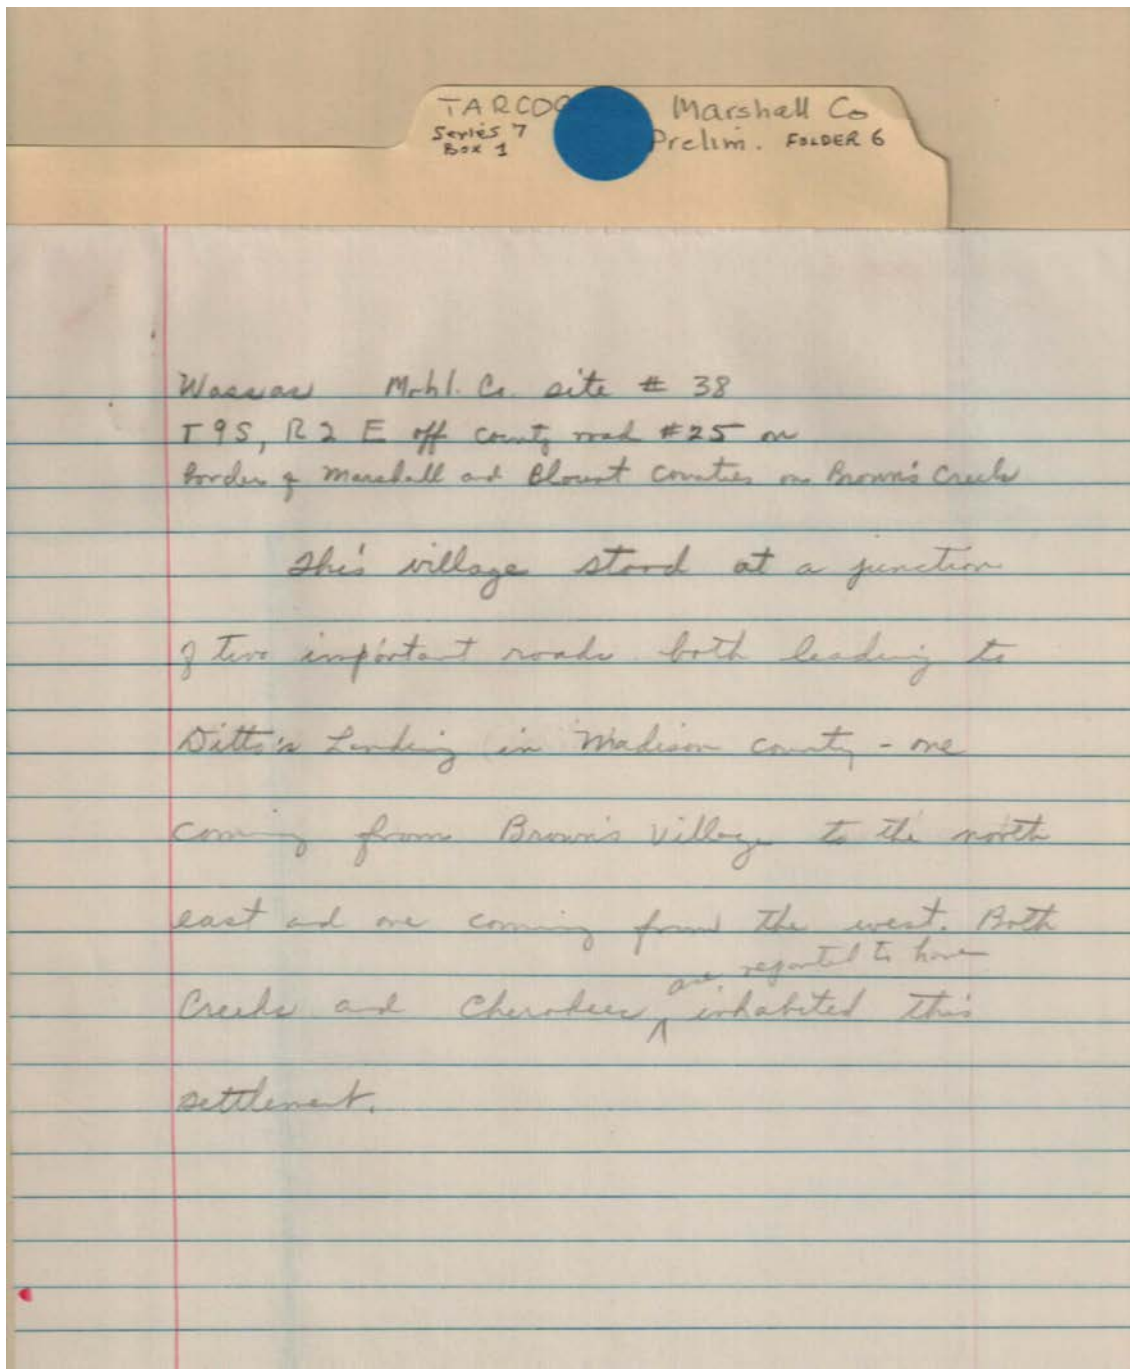 TARCOG Marshall Co
Series 7 Prelim. FOLDER 6
Box 1
Wassas Mrhl. Co. site # 38
T9S, R2 E off county road #25 on
border of Marshall and Blount Counties on Brown's Creek
This village stood at a junction
of two important roads both leading to
Ditto's Landing in Madison county - one
coming from Brown's Village to the north
east and one coming from the west. Both
are reported to have
Creeks and Cherokees ^ inhabited this
settlement.